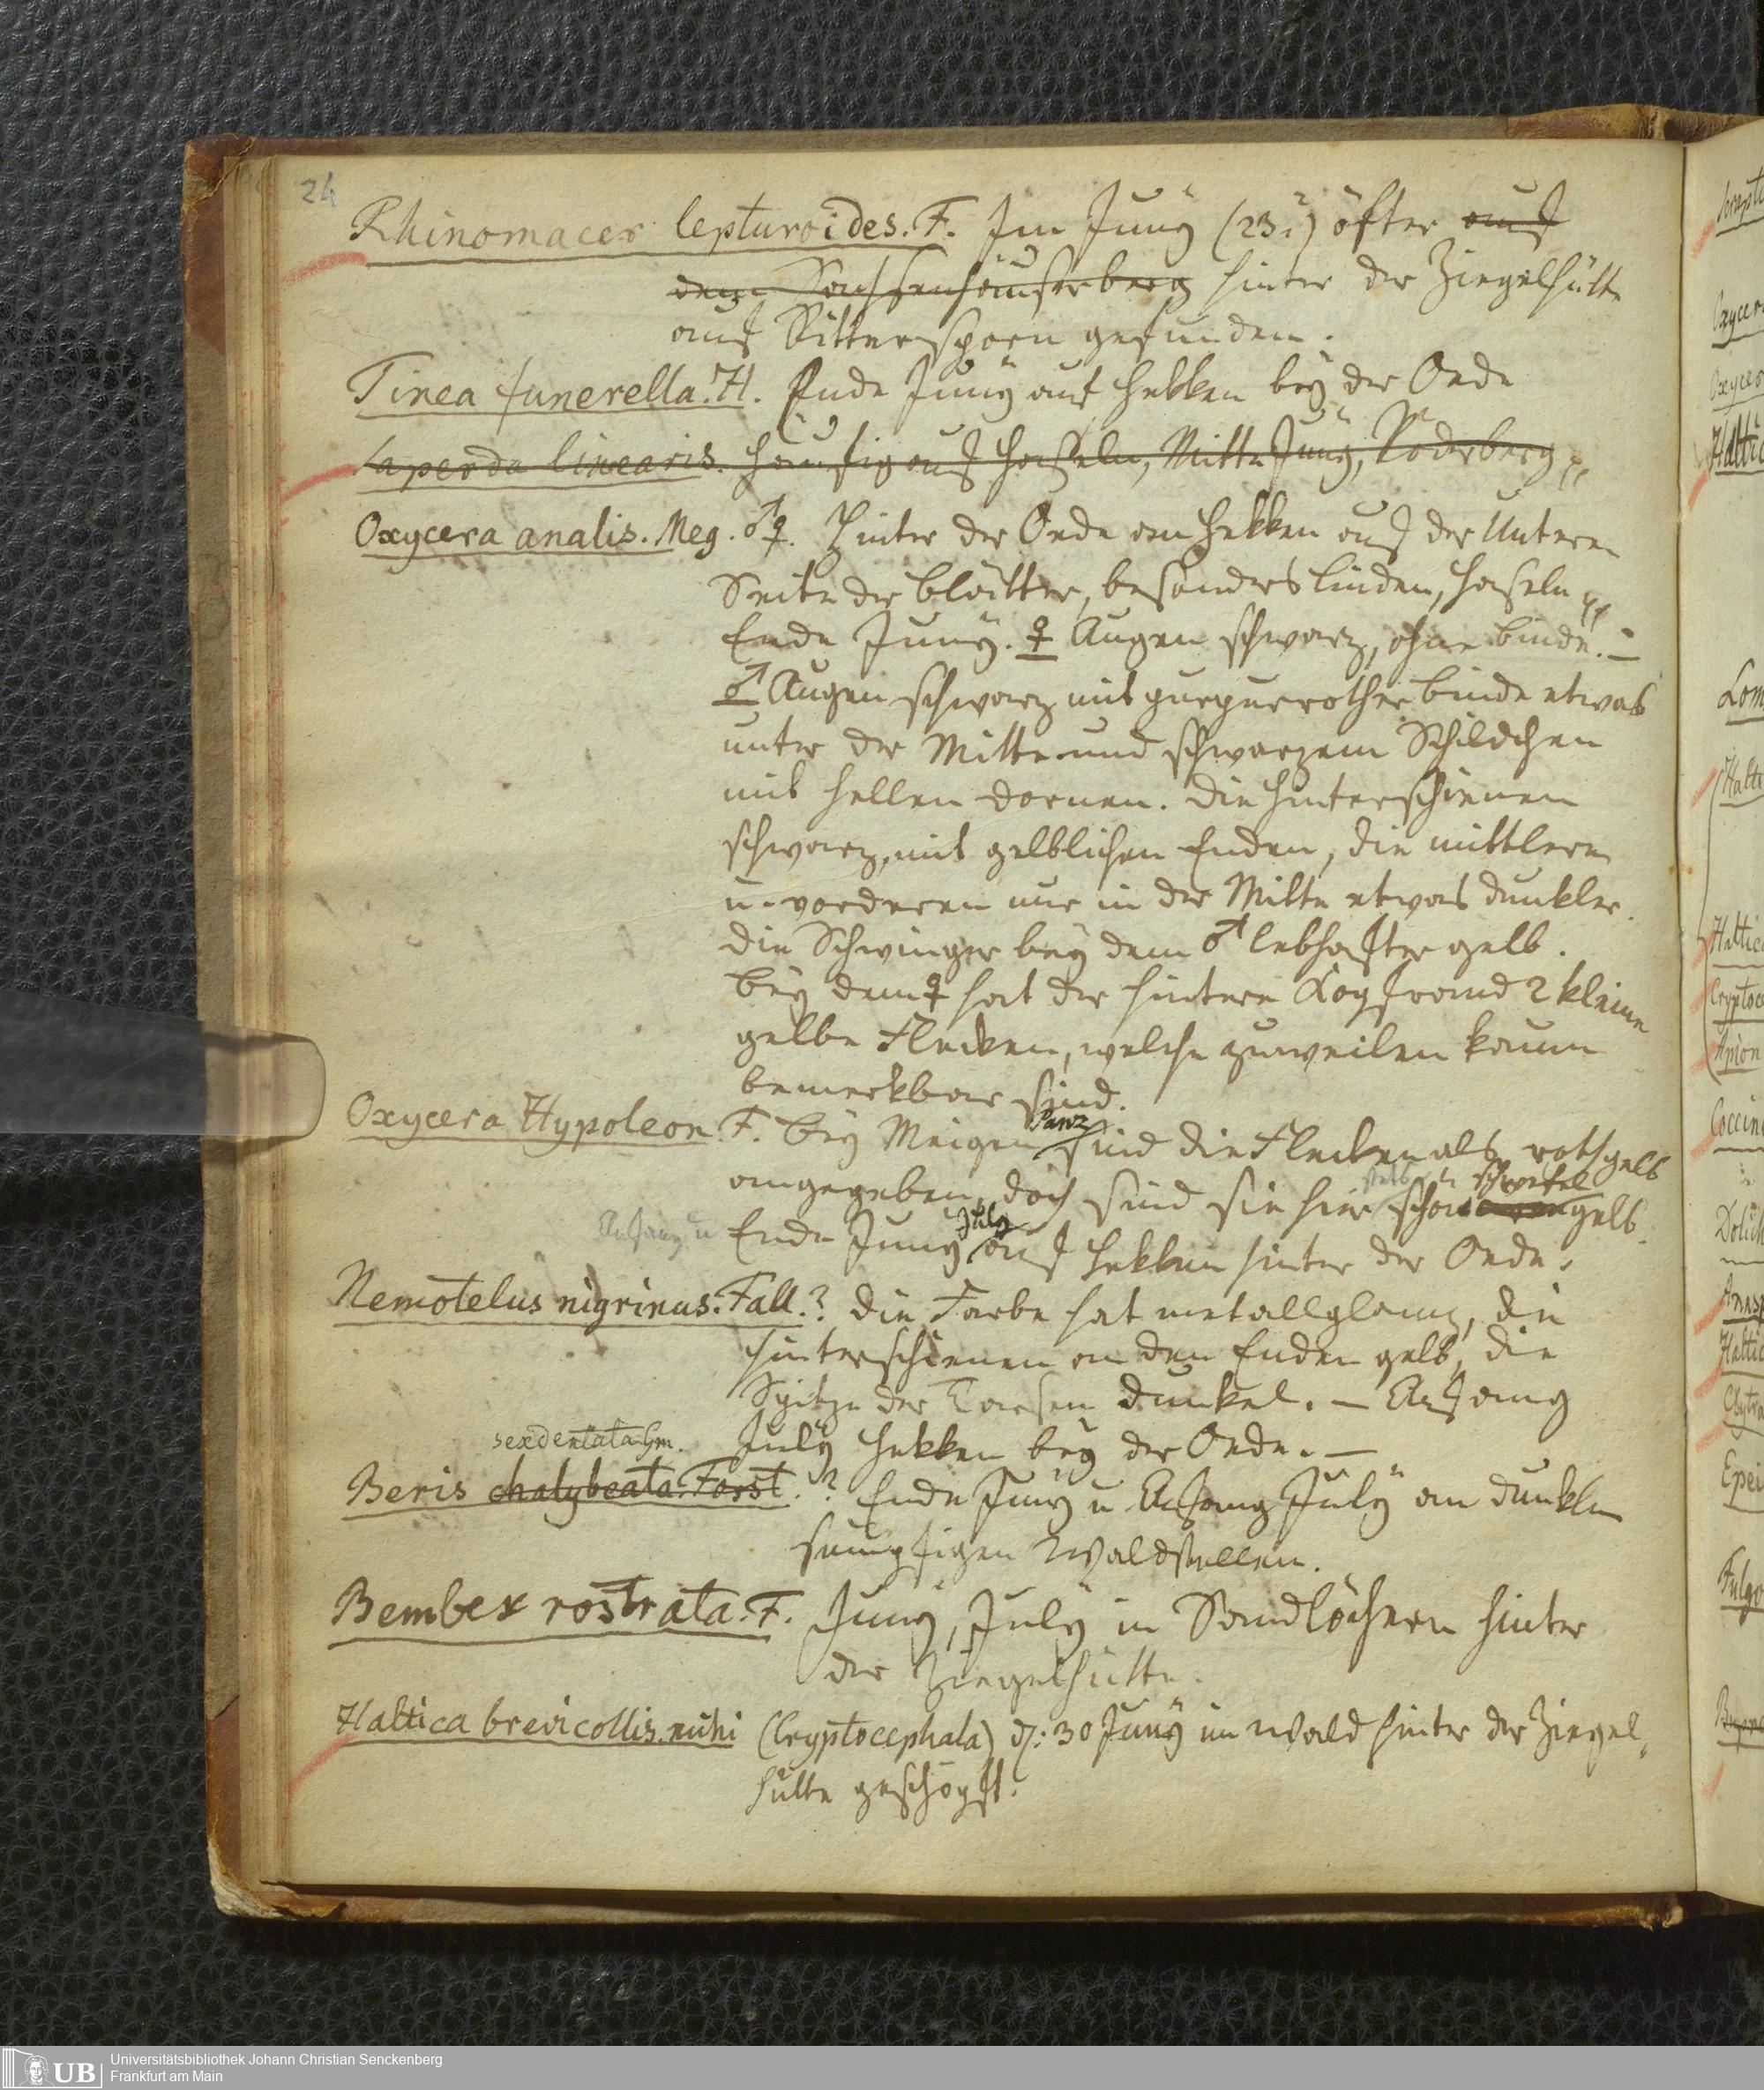 24
Rhinomacer lepturoides. F. Im Juny (23.) öfter auf
dem Sachsenhäuserberg hinter der Ziegelhütte
auf Rittersporn gefunden.
Tinea funerella. H. Ende Juny auf Hekken bey der Oede
Saperda linearis. häufig auf Haseln, Mitte Juny, Röderberg
Oxycera analis. Meg. ♂♀. Hinter der Oede an Hekken auf der Unteren
Seite der Blätter, besonders Linden, Haseln
Ende Juny. ♀ Augen schwarz, ohne Binde. –
♂ Augen schwarz mit purpurrother Binde etwas
unter der Mitte und schwarzem Schildchen
mit hellen Dornen. Die Hinterschienen
schwarz, mit gelblichen Enden, die mittlern
u. vorderen nur in der Mitte etwas dunkler.
Die Schwinger bey dem ♂ lebhafter gelb.
Bey dem ♀ hat der hintere Kopfrand 2 kleine
gelbe Flecken, welche zuweilen kaum
bemerkbar sind.
Panz
Oxycera Hypoleon. F. Bey Meigen sind die Flecken als rothgelb
stets schwefel
angegeben, doch sind sie hier gelb.
July
Anfang u Ende Juny auf Hekken hinter der Oede.
Nemotelus nigrinus. Fall.? Die Farbe hat metallglanz, die
Hinterschienen an den Enden gelb, die
Spitze der Tarsen dunkel. – Anfang
July Hekken bey der Oede. –
sexdentata Gm.
Beris chalybeata. Forst.? Ende Juny u Anfang July an dunklen
sumpfigen Waldstellen.
Bembex rostrata. F. Juny, July in Sandlöchern hinter
der Ziegelhütte.
Haltica brevicollis. mihi (Cryptocephala) d: 30 Juny im Wald hinter der Ziegel„
hütte geschöpft.
Oxycera
Haltic
Lom
Halti
Haltica
Cryptoc
Apion
Coccine
Dolich
Haltic
Clytra
Epei
Fulgo
UB Universitätsbibliothek Johann Christian Senckenberg
Frankfurt am Main